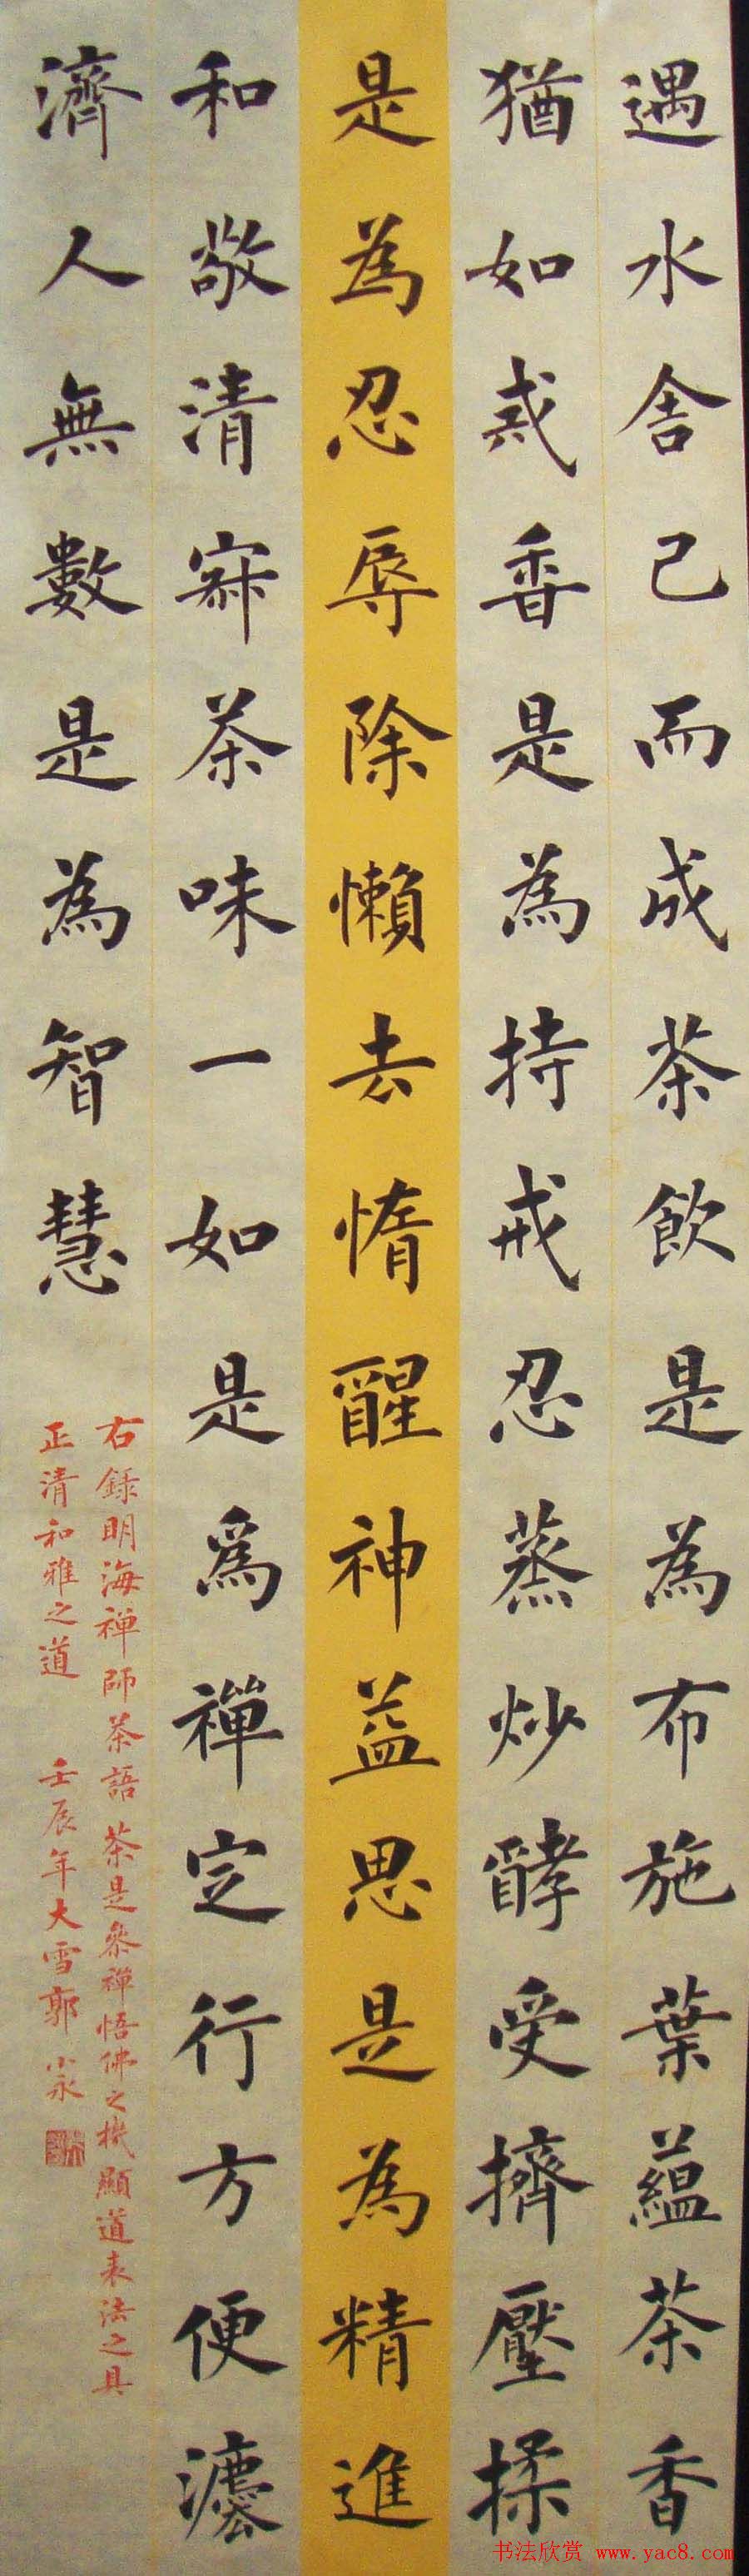 遇水舍己而成茶飲是為布施葉蘊茶香
猶如戒香是為持戒忍蒸炒酵受擠壓揉
是為忍辱除懶去惰醒神益思是為精進
和敬清寂茶味一如是爲禪定行方便法
濟人無數是為智慧
右錄明海禅師茶語茶是參禅悟佛之機顯道表法之具
正清和雅之道 壬辰年大雪郭小永
书法欣赏 www.yac8.com